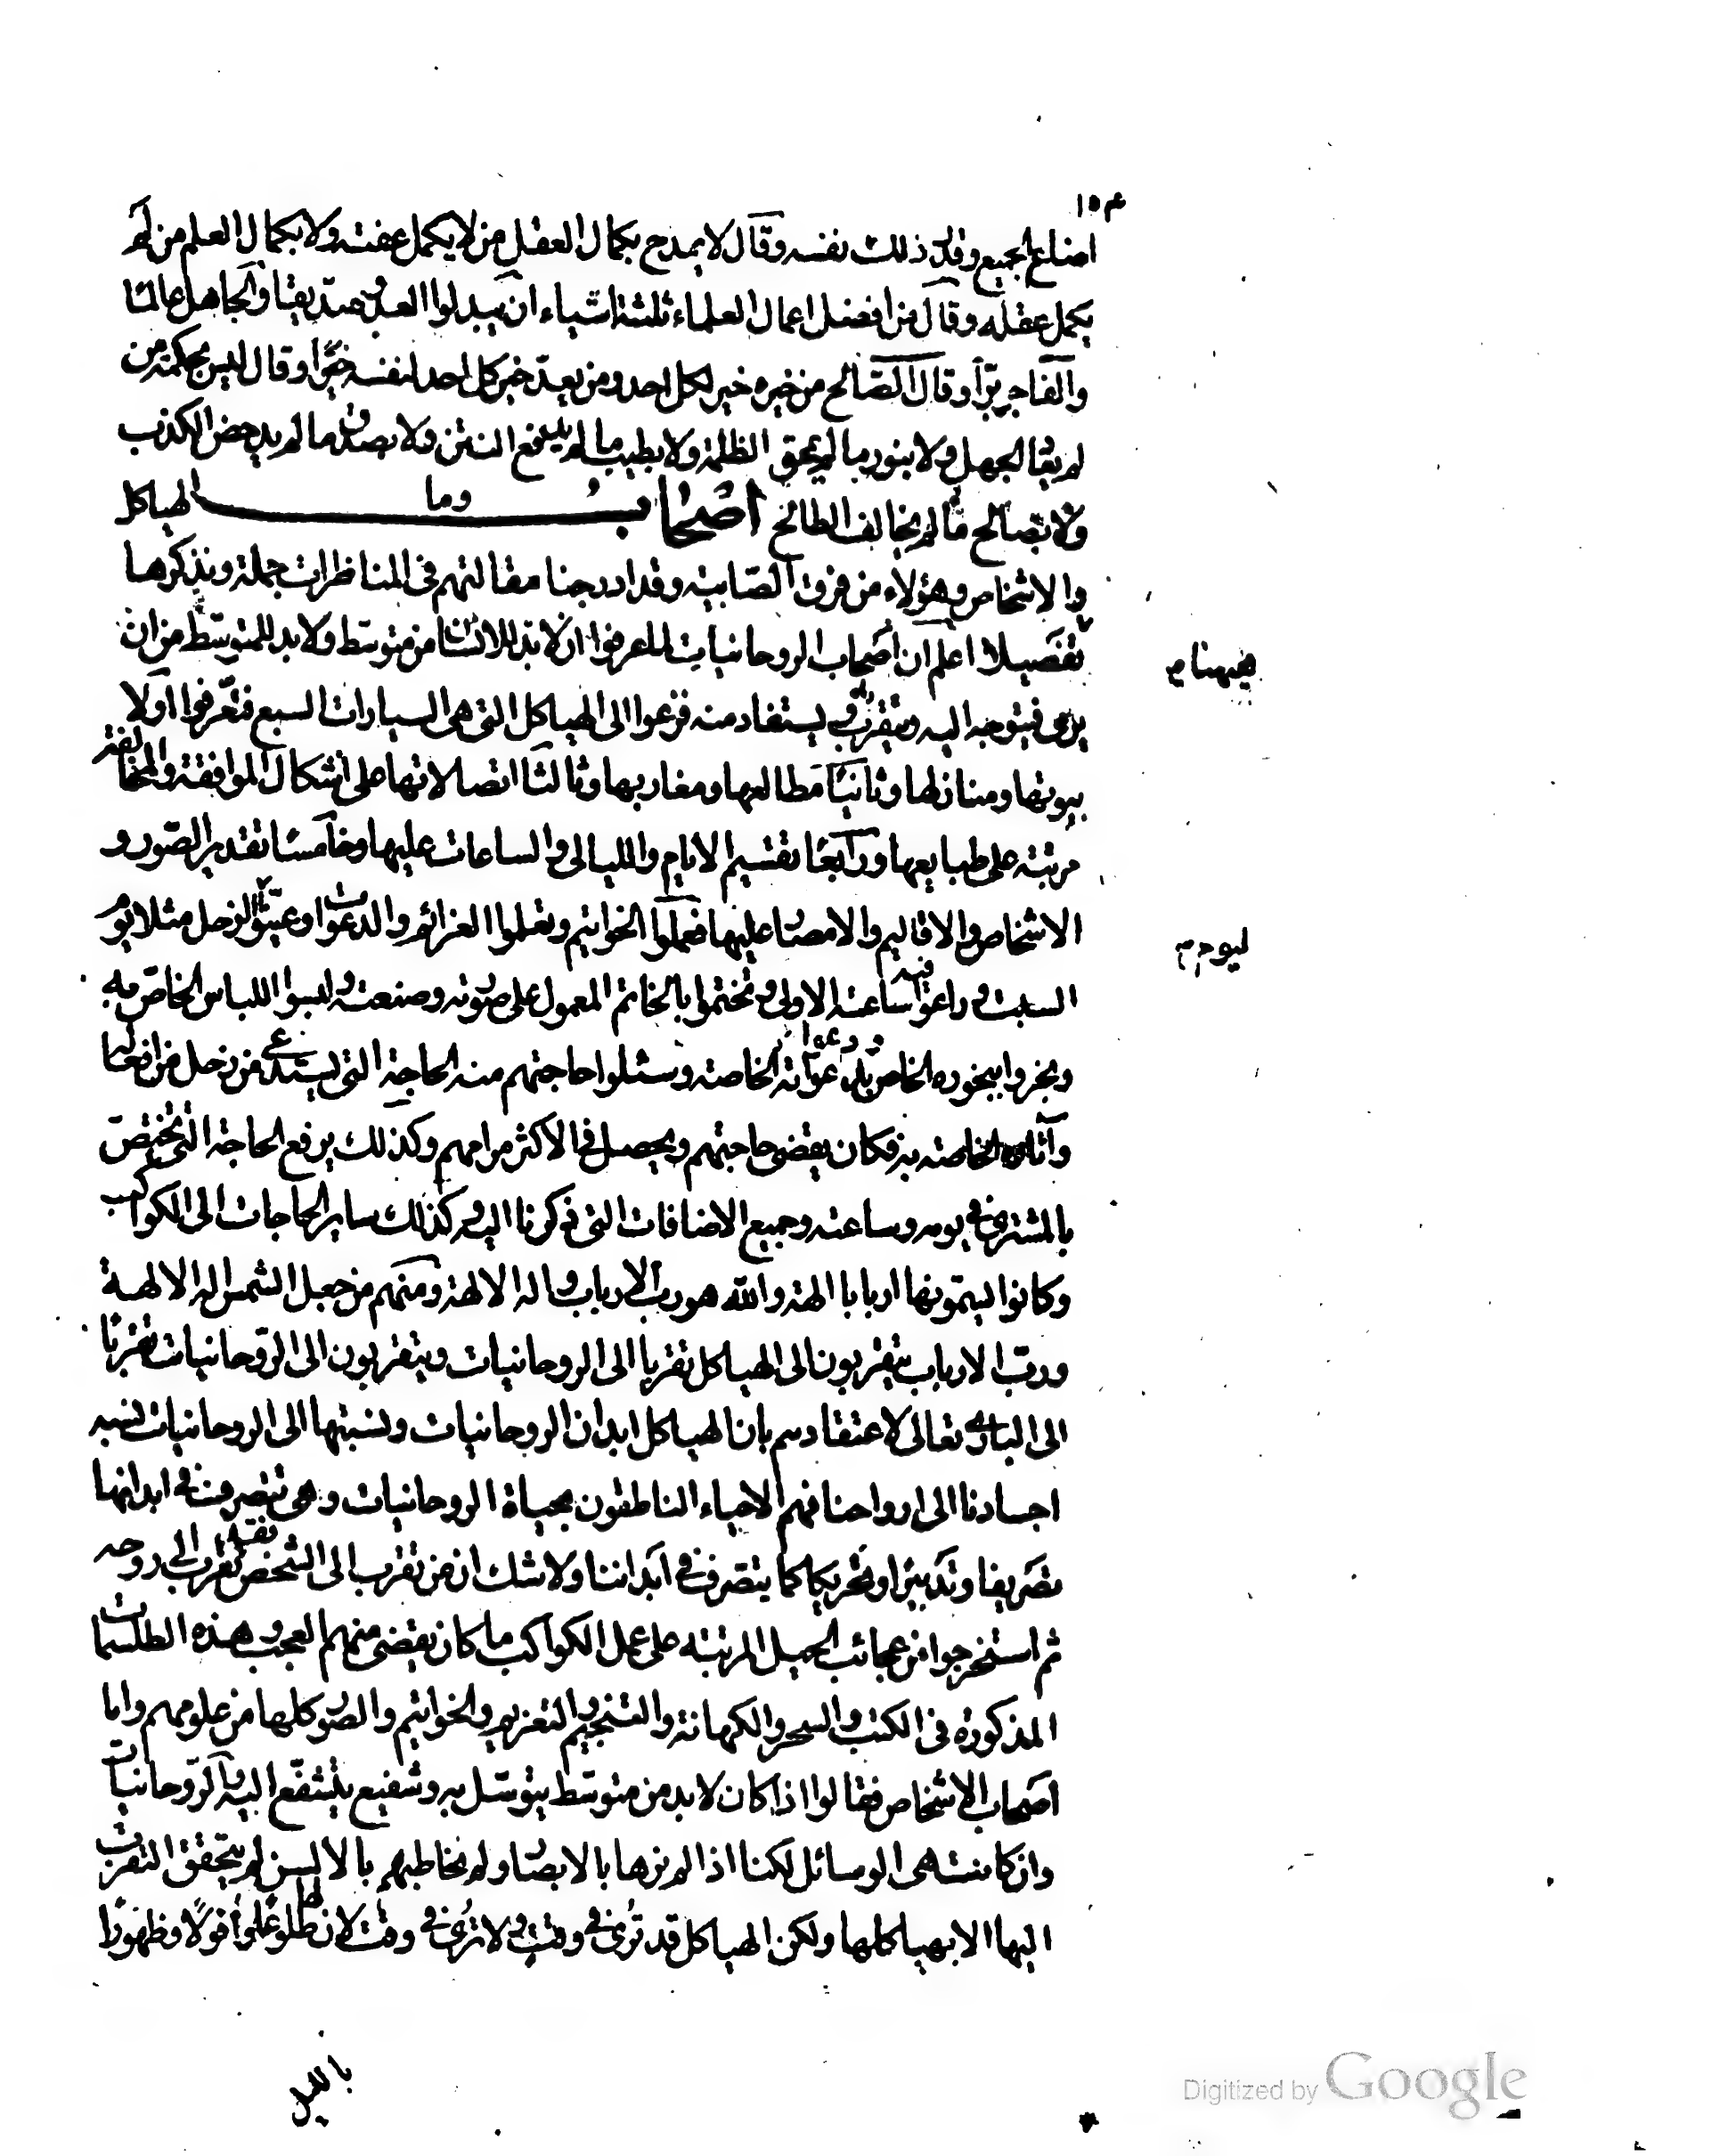 ١٥٤
اضاع الجميع وقال ذلك نفسه وقال لا يمدح بكمال العقل من لا يكمل عفته ولا بكمال العلم من لم
يكمل عقله وقال من افضل اعمال العلماء ثلثة اشياء ان يبدلوا العدو صديقا والجاهل عالما
والفاجر برّا وقال الصّالح من خيره خير لكل احد ومن يعدّ خير كل احد لنفسه خيرا وقال ليس بحكمة من
لم يعاد الجهل ولا بنور ما لم يمحق الظلمة ولا بطيب ما لم يدفع النتن ولا بصدق ما لم يدحض الكذب
ولا بصالح ما لم يخالف الطالح اصحاب وما الهياكل
والاشخاص وهؤلاء من فرق الصّابية وقد ادرجنا مقالتهم فى المناظرات جملة ونذكرها
ههنا
تفصيلا اعلم ان اصحاب الروحانيات لما عرفوا ان لا بدّ للانسان من متوسّط ولا بد للمتوسّط من ان
يرى فيتوجه اليه ويتقرب به ويستفاد منه فزعوا الى الهياكل التى هى السيارات السبع فتعرّفوا اولا
بيوتها ومنازلها وثانيًا مطالعها ومغاربها وثالثا اتصالاتها على اشكال الموافقة والمخالفة
مرتبة على طبايعها ورابعًا تقسيم الايام والليالى والساعات عليها وخامسًا تقدير الصّور و
الاشخاص والاقاليم والامصار عليها فعملوا الخواتيم وتعلموا العزائم والدعوات وعيّنوا لزحل مثلا يوم
ليوم
السبت وراعوا فيه ساعته الاولى وتختموا بالخاتم المعمول على صورته وصنعته ولبسوا اللباس الخاصّ به
وبخروا ببخوره الخاص ودعوا بدعواته الخاصة وسئلوا حاجتهم منه الحاجة التى يستدعى من زحل من افعاله
وآثاره الخاصة به فكان يقضى حاجتهم ويحصل فى الاكثر مرامهم وكذلك يرفع الحاجة التى تختصّ
بالمشترى فى يومه وساعته وجميع الاضافات التى ذكرنا اليه وكذلك ساير الحاجات الى الكواكب
وكانوا يسمّونها اربابا الهة والله هو رب الارباب واله الالهة ومنهم من جعل الشمس اله الالهة
وربّ الارباب يتقربون الى الهياكل تقربا الى الروحانيات ويتقربون الى الرّوحانيات تقربًا
الى البارى تعالى لاعتقادهم بان الهياكل ابدان الروحانيات ونسبتها الى الروحانيات نسبة
اجسادنا الى ارواحنا فهم الاحياء الناطقون بحياة الروحانيات وهى تتصرف فى ابدانها
تصريفا وتدبيرا وتحريكا كما يتصرف فى ابداننا ولا شك ان من تقرب الى الشخص فقد تقرب الى روحه
ثم استخرجوا من عجائب الحيل المرتبة على عمل الكواكب ما كان يقضى منهم العجب وهذه الطلسمات
المذكورة فى الكتب والسحر والكهانة والتنجيم والتعزيم والخواتيم والصور كلها من علومهم واما
اصحاب الاشخاص فقالوا اذا كان لا بد من متوسّط يتوسّل به وشفيع يتشفّع اليه والرّوحانيات
وان كانت هى الوسائل لكنا اذا لم نرها بالابصار ولم نخاطبهم بالالسن لم يتحقق التقرب
اليها الا بهياكلها ولكن الهياكل قد ترى فى وقت ولا ترى فى وقت لان لها طلوعا وافولا وظهورًا
بالليل
Digitized by Google